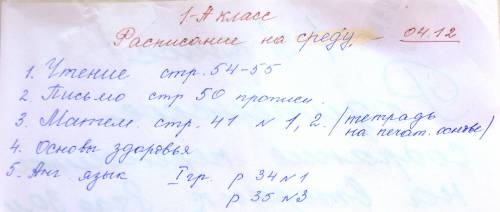 1-А класс
Расписание на среду – 04.12
1. Чтение стр. 54-55
2. Письмо стр 50 прописи.
3. Матем. стр. 41 № 1, 2. /тетрадь
на печат. основе/
4. Основы здоровья
5. Анг. язык I гр. р 34 №1
р 35 №3